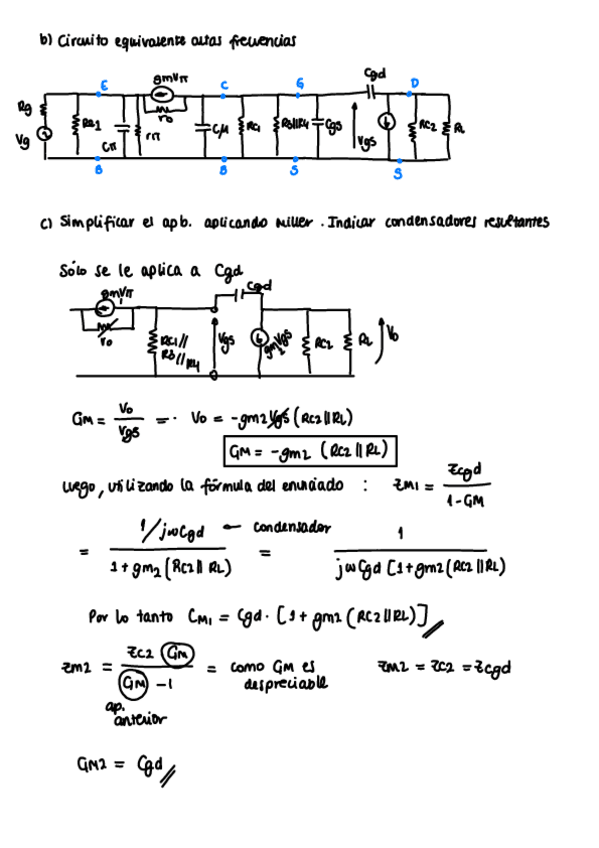 b) Circuito equivalente altas frecuencias
E gmVπ C G Cgd D
Rg Vg RE1 Cπ rπ ro Cμ RC1 R3||R4 Cgs Vgs RC2 RL
B B S S
c) Simplificar el apb. aplicando Miller. Indicar condensadores resultantes
Sólo se le aplica a Cgd
gmVπ Cgd
ro RC1// R3//R4 Vgs gm2Vgs RC2 RL Vo
GM = Vo/Vgs =· Vo = -gm2 Vgs (RC2||RL)
GM = -gm2 (RC2||RL)
Luego, utilizando la fórmula del enunciado : ZM1 = Zcgd/1-GM
= 1/jωCgd ← condensador / 1+gm2(RC2||RL) = 1/jωCgd [1+gm2(RC2||RL)
Por lo tanto CM1 = Cgd · [1+gm2(RC2||RL)]
Zm2 = ZC2 GM/GM -1 = como GM es despreciable ZM2 = ZC2 = Zcgd
ap. anterior
GM2 = Cgd